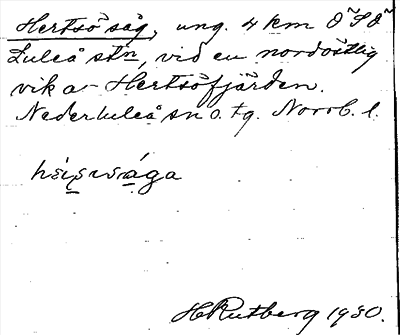 Hertsö såg, ung. 4 km O˜SO˜
Luleå stn, vid en nordöstlig
vik a- Hertsöfjärden.
Nederluleå sn o. tg. Norrb. l.
H Rutberg 1930.